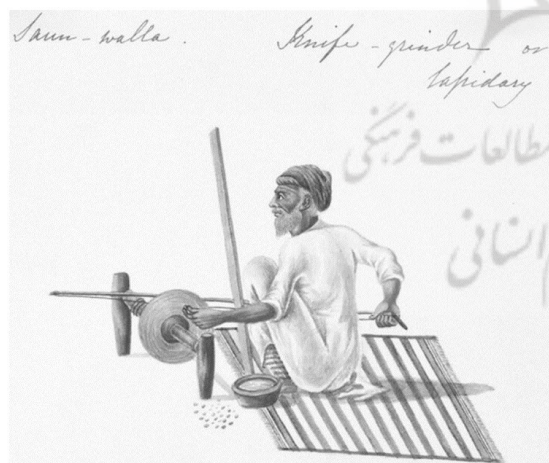 Saun-walla. Knife-grinder or
lapidary
مطالعات فرهنگی
انسانی